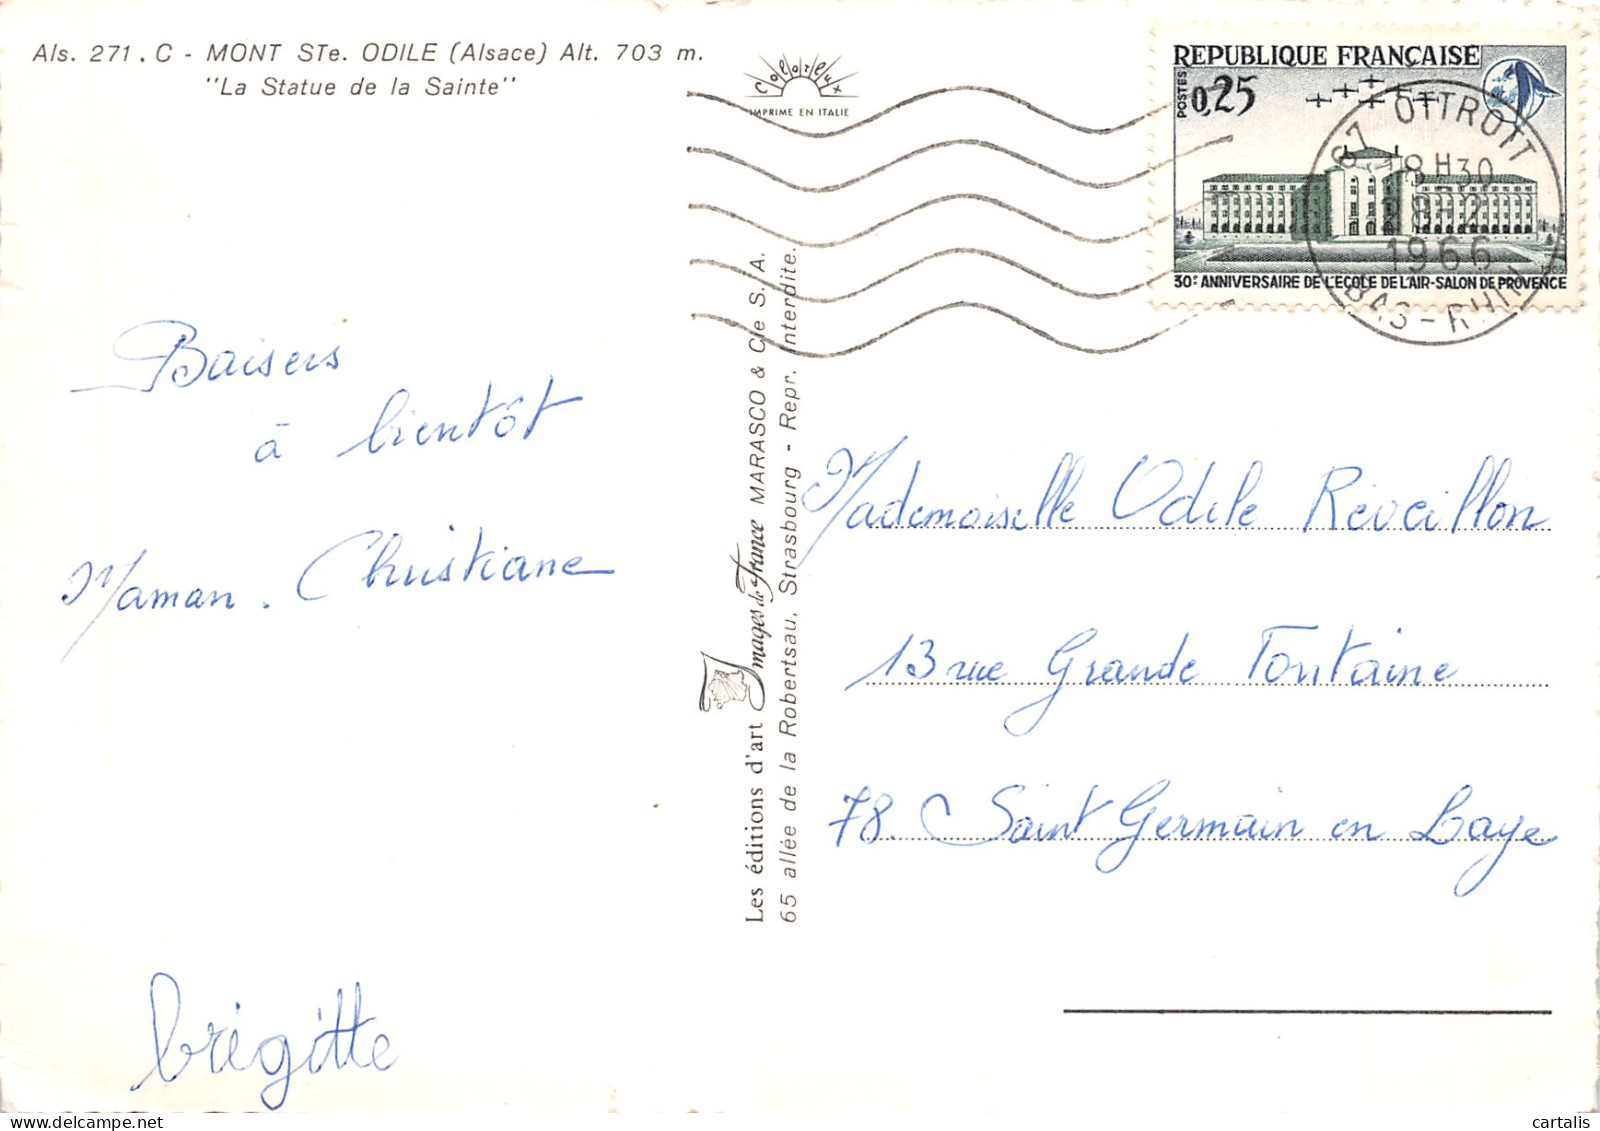 Als. 271.C - MONT STe. ODILE (Alsace) Alt. 703 m.
"La Statue de la Sainte"
Colorlux
IMPRIME EN ITALIE
REPUBLIQUE FRANÇAISE
POSTES
0,25
1965
30E ANNIVERSAIRE DE L'ECOLE DE L'AIR-SALON DE PROVENCE
67 OTTROTT
18H30
1966
BAS-RHIN
Baisers
à bientôt
Maman. Christiane
brigitte
Les éditions d'art Images de France MARASCO & Cie S. A.
65 allée de la Robertsau, Strasbourg - Repr. Interdite.
Mademoiselle Odile Reveillon
13 rue Grande Fontaine
78. Saint Germain en Laye
cartalis